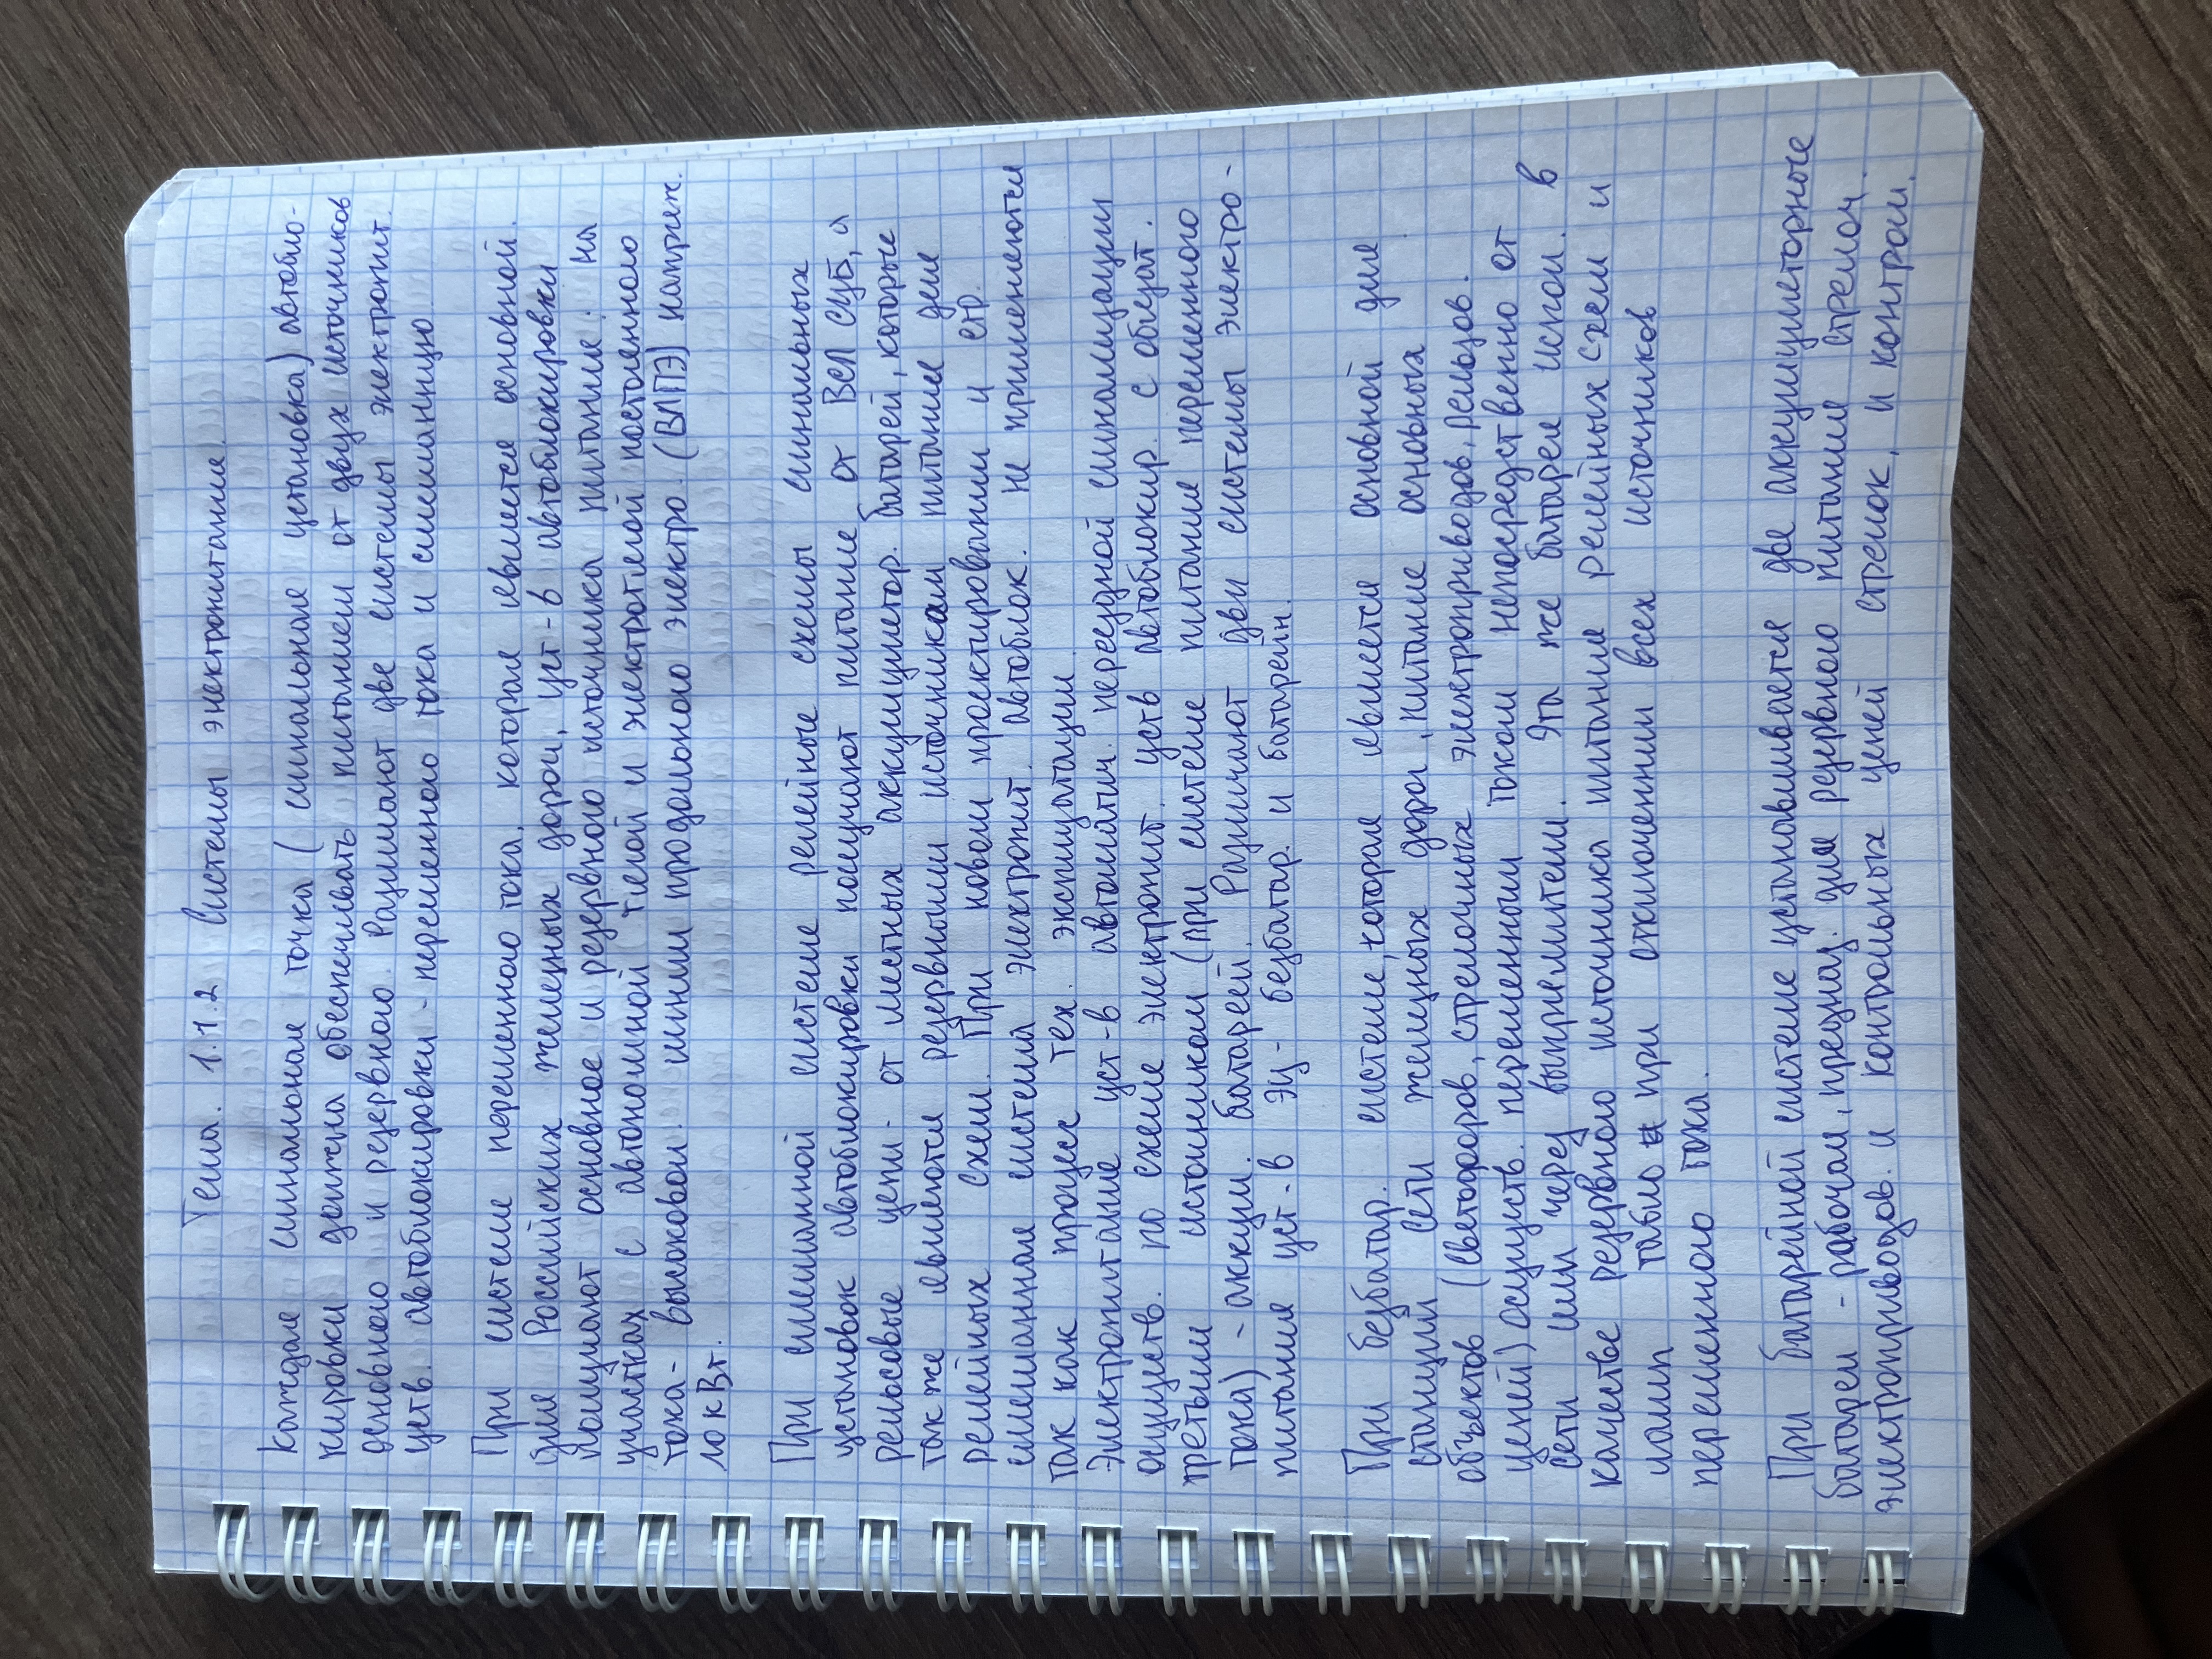 Тема. 1.1.2 Системы электропитание.
Каждая сигнальная точка (сигнальная установка) автобло-
кировки должна обеспечивать питанием от двух источников
основного и резервного. Различают две системы электропит.
уств. автоблокировки - переменного тока и смешанную
При системе переменного тока, которая является основной.
для Российских железных дорог, уст-в автоблокировки
получают основное и резервного источника питание. На
участках с автономной тягой и электротягой постоянного
тока - высоковол. линии продольного электро. (ВЛПЭ) напряж.
10 кВт.
При смешанной системе релейные схемы сигнальных
установок автоблокировки получают питание от ВСЛ СЦБ, а
рельсовые цепи - от местных аккумулятор. батарей, которые
так же являются резервными источникам питания для
релейных схем. При новом проектировании и стр.
смешанная система электропит. автоблок. не применяются
так как процесс тех. эксплуатации
Электропитание уст-в автоматич. переездной сигнализации
осуществ. по схеме электропит. уств автоблокир. с общат.
третьим источником (при системе питание переменного
тока) - аккум. батареей. Различают две системы электро-
питания уст-в ЭЦ - безбатар. и батарейн.
При безбатар. системе, которая является основной для
станций сети железных дорог, питание основных
объектов (светофоров, стрелочных электроприводов, рельсов.
цепей) осуществ. переменным током непосредственно от
сети или через выпрямители. Эта же батарея испол. в
качестве резервного источника питания релейных схем и
ламп табло при отключении всех источников
переменного тока.
При батарейной системе устанавливается две аккумуляторные
батареи - рабочая, предназ. для резервного питание стрелоч.
электроприводов. и контрольных цепей стрелок, и контрол.